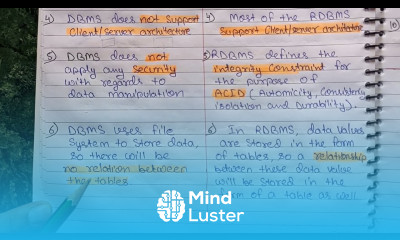 4) DBMS does not support
client/server architecture
5) DBMS does not
apply any security
with regards to
data manipulation
6) DBMS uses file
system to store data,
so there will be
no relation between
the tables
4) Most of the RDBMS
support client/server architecture
5) RDBMS defines the
integrity constraint for
the purpose of
ACID (Automicity, consistency
isolation and durability).
6) In RDBMS, data values
are stored in the form
of tables, so a relationship
between these data value
will be stored in the
form of a table as well
10)
Mind
Luster